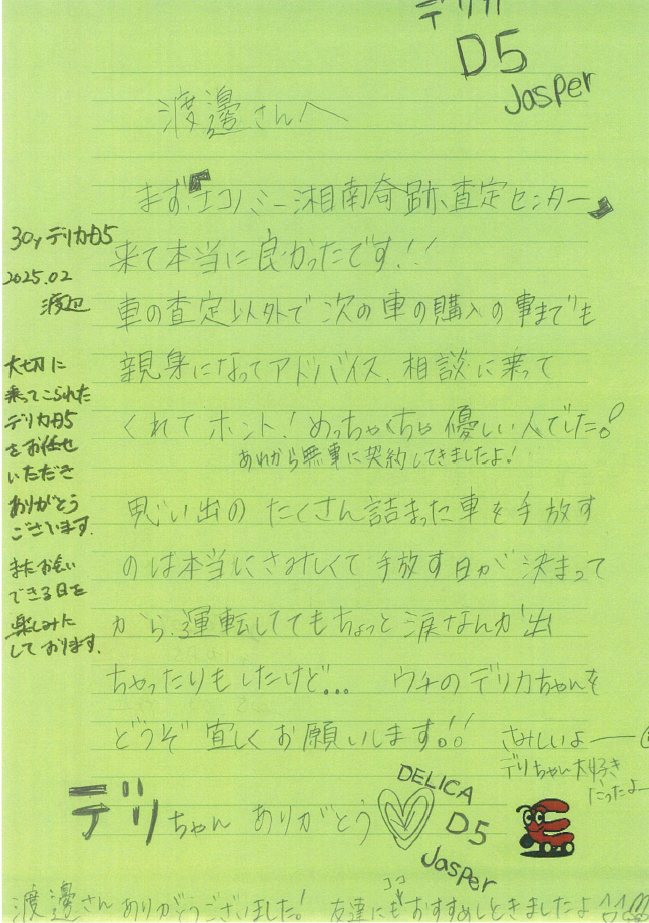 デリカ
D5
Jasper
渡邊さんへ
まず、『エコノミー湘南奇跡、査定センター』
来て本当に良かったです!!
車の査定以外で次の車の購入の事までも
親身になってアドバイス、相談に乗って
くれてホント!めっちゃくちゃ優しい人でした。
あれから無事に契約してきましたよ!
思い出のたくさん詰まった車を手放す
のは本当にさみしくて手放す日が決まって
から、運転しててもちょっと涙なんか出
ちゃったりもしたけど... ウチのデリカちゃんを
どうぞ宜しくお願いします!! さみしいよー
デリちゃん大好き
だったよー
デリちゃんありがとう
DELICA
D5
Jasper
渡邊さんありがとうございました! 友達にもおすすめしときましたよ
ココ
30y デリカD5
2025.02
渡辺
大切に
乗ってこられた
デリカD5
をお任せ
いただき
ありがとう
ございます。
またお会い
できる日を
楽しみに
しております。